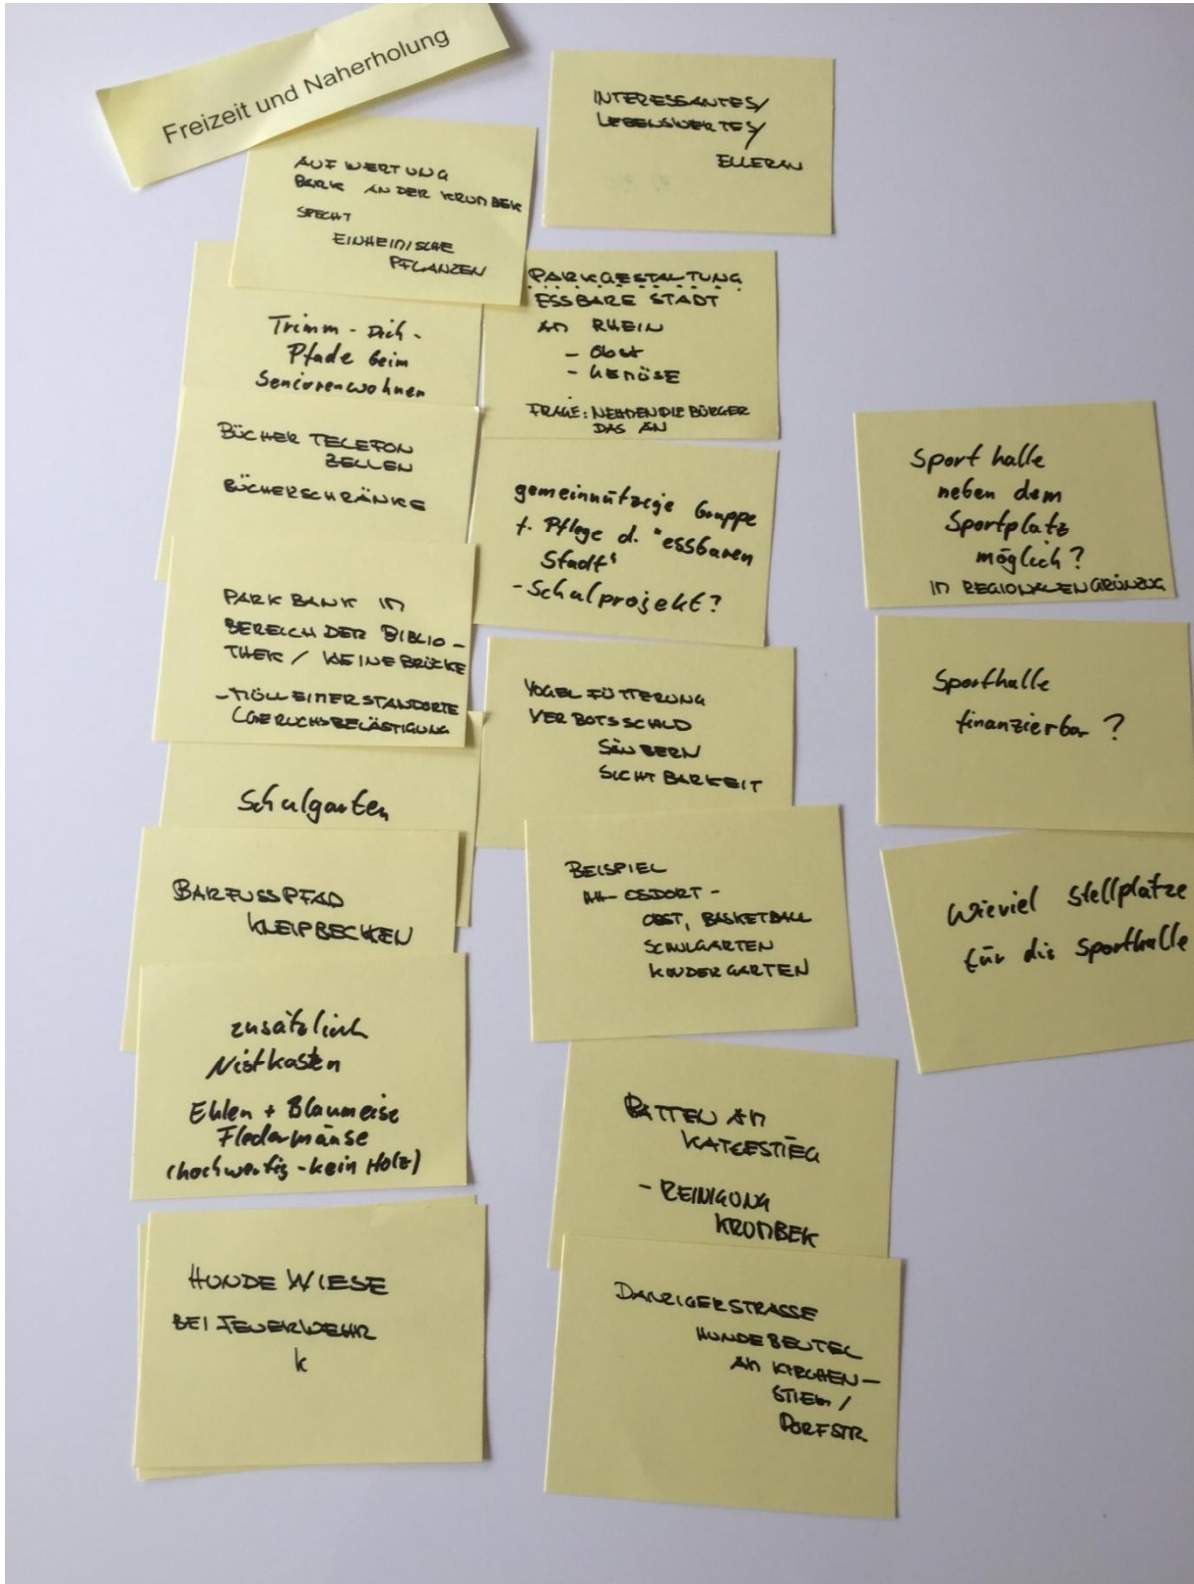 Freizeit und Naherholung
AUFWERTUNG
PARK AN DER KRUMBEK
SPECHT
EINHEIMISCHE
PFLANZEN
Trimm-Dich-
Pfade beim
Seniorenwohnen
BÜCHER TELEFON
ZELLEN
BÜCHERSCHRÄNKE
PARK BANK IM
BEREICH DER BIBLIO-
THEK / KLEINE BRÜCKE
- MÜLLEIMER STANDORTE
(GERUCHSBELÄSTIGUNG
Schulgarten
BARFUSSPFAD
KNEIPBECKEN
zusätzlich
Nistkasten
Eulen + Blaumeise
Fledermäuse
(hochwertig - kein Holz)
HUNDE WIESE
BEI FEUERWEHR
k
INTERESSANTES/
LEBENSWERTES/
ELLERAU
PARKGESTALTUNG
ESSBARE STADT
AM RHEIN
- Obst
- GEMÜSE
FRAGE: NEHMEN DIE BÜRGER
DAS AN
gemeinnützige Gruppe
f. Pflege d. "essbaren
Stadt"
- Schulprojekt?
VOGELFÜTTERUNG
VERBOTSSCHILD
SÄUBERN
SICHTBARKEIT
BEISPIEL
HH- OSDORF -
OBST, BASKETBALL
SCHULGARTEN
KINDERGARTEN
RATTEN AM
KATGESTIEG
- REINIGUNG
KRUMBEK
DANZIGERSTRASSE
HUNDEBEUTEL
AM KIRCHEN-
STIEG /
DORFSTR.
Sporthalle
neben dem
Sportplatz
möglich?
IM REGIONALEN GRÜNZUG
Sporthalle
finanzierbar?
Wieviel Stellplätze
für die Sporthalle